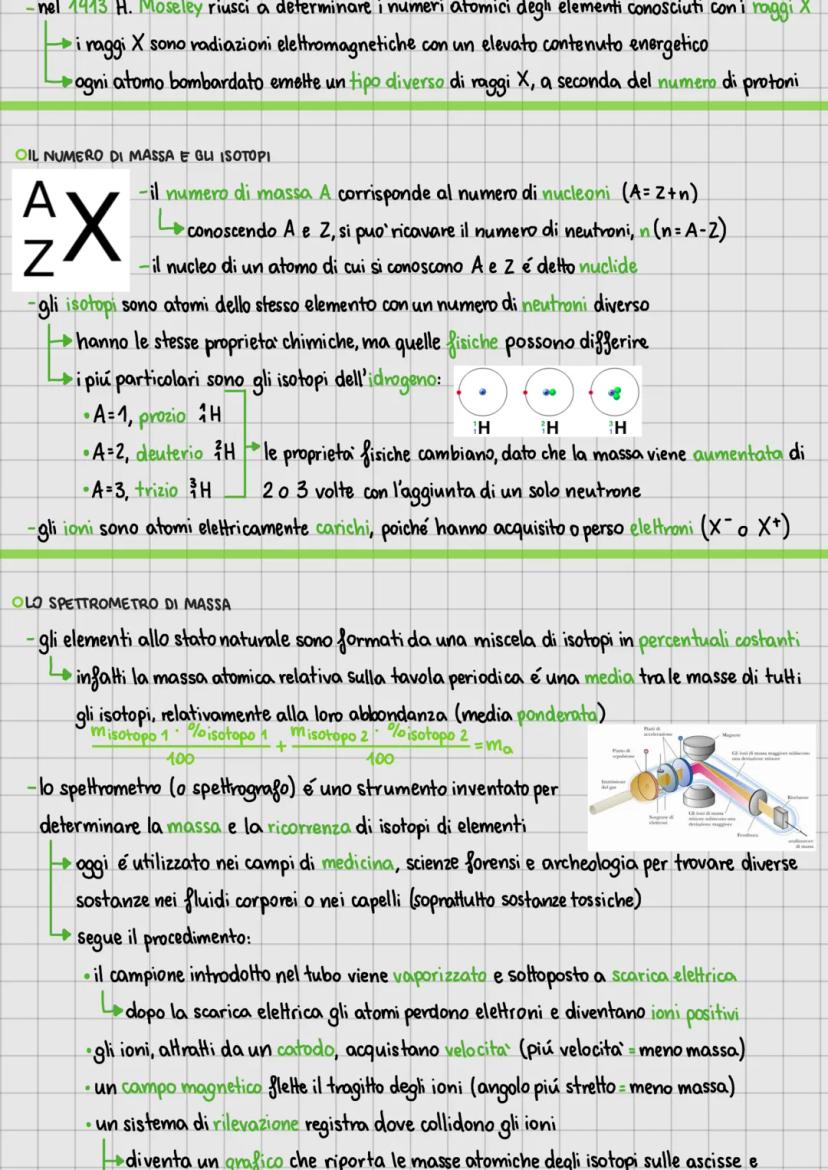 -nel 1913 H. Moseley riuscì a determinare i numeri atomici degli elementi conosciuti con i raggi X
i raggi X sono radiazioni elettromagnetiche con un elevato contenuto energetico
ogni atomo bombardato emette un tipo diverso di raggi X, a seconda del numero di protoni
IL NUMERO DI MASSA E GLI ISOTOPI
A
Z
X
-il numero di massa A corrisponde al numero di nucleoni (A=Z+n)
conoscendo A e Z, si puo' ricavare il numero di neutroni, n (n=A-Z)
-il nucleo di un atomo di cui si conoscono A e Z é detto nuclide
-gli isotopi sono atomi dello stesso elemento con un numero di neutroni diverso
hanno le stesse proprieta' chimiche, ma quelle fisiche possono differire
i piú particolari sono gli isotopi dell'idrogeno:
¹₁H ²₁H ³₁H
•A=1, prozio ¹₁H
•A=2, deuterio ²₁H
le proprieta' fisiche cambiano, dato che la massa viene aumentata di
•A=3, trizio ³₁H
2 o 3 volte con l'aggiunta di un solo neutrone
-gli ioni sono atomi elettricamente carichi, poiché hanno acquisito o perso elettroni (X⁻ o X⁺)
LO SPETTROMETRO DI MASSA
-gli elementi allo stato naturale sono formati da una miscela di isotopi in percentuali costanti
infatti la massa atomica relativa sulla tavola periodica é una media tra le masse di tutti
gli isotopi, relativamente alla loro abbondanza (media ponderata)
m isotopo 1 · % isotopo 1 / 100 + m isotopo 2 · % isotopo 2 / 100 = ma
Piatti di accelerazione
Magnete
Gli ioni di massa maggiore subiscono una deviazione minore
Piastra di repulsione
Immissione del gas
Sorgente di elettroni
Gli ioni di massa minore subiscono una deviazione maggiore
Fenditura
Rivelatore
analizzatore di massa
-lo spettrometro (o spettrografo) é uno strumento inventato per
determinare la massa e la ricorrenza di isotopi di elementi
oggi é utilizzato nei campi di medicina, scienze forensi e archeologia per trovare diverse
sostanze nei fluidi corporei o nei capelli (soprattutto sostanze tossiche)
segue il procedimento:
•il campione introdotto nel tubo viene vaporizzato e sottoposto a scarica elettrica
dopo la scarica elettrica gli atomi perdono elettroni e diventano ioni positivi
•gli ioni, attratti da un catodo, acquistano velocita' (piú velocita' = meno massa)
•un campo magnetico flette il tragitto degli ioni (angolo piú stretto = meno massa)
•un sistema di rilevazione registra dove collidono gli ioni
diventa un grafico che riporta le masse atomiche degli isotopi sulle ascisse e